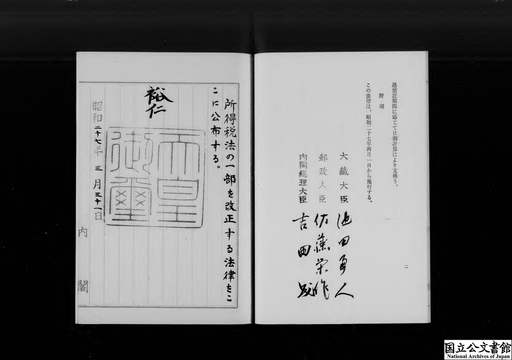 附則
この法律は、昭和二十七年四月一日から施行する。
大蔵大臣 池田勇人
郵政大臣 佐藤栄作
内閣総理大臣 吉田茂
二
所得税法の一部を改正する法律をこ
こに公布する。
裕仁
天皇御璽
昭和二十七年三月三十一日
内閣
国立公文書館
National Archives of Japan